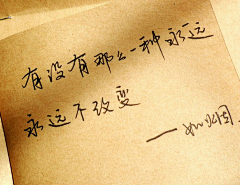 有没有那么一种永远
永远不改变
——如烟.